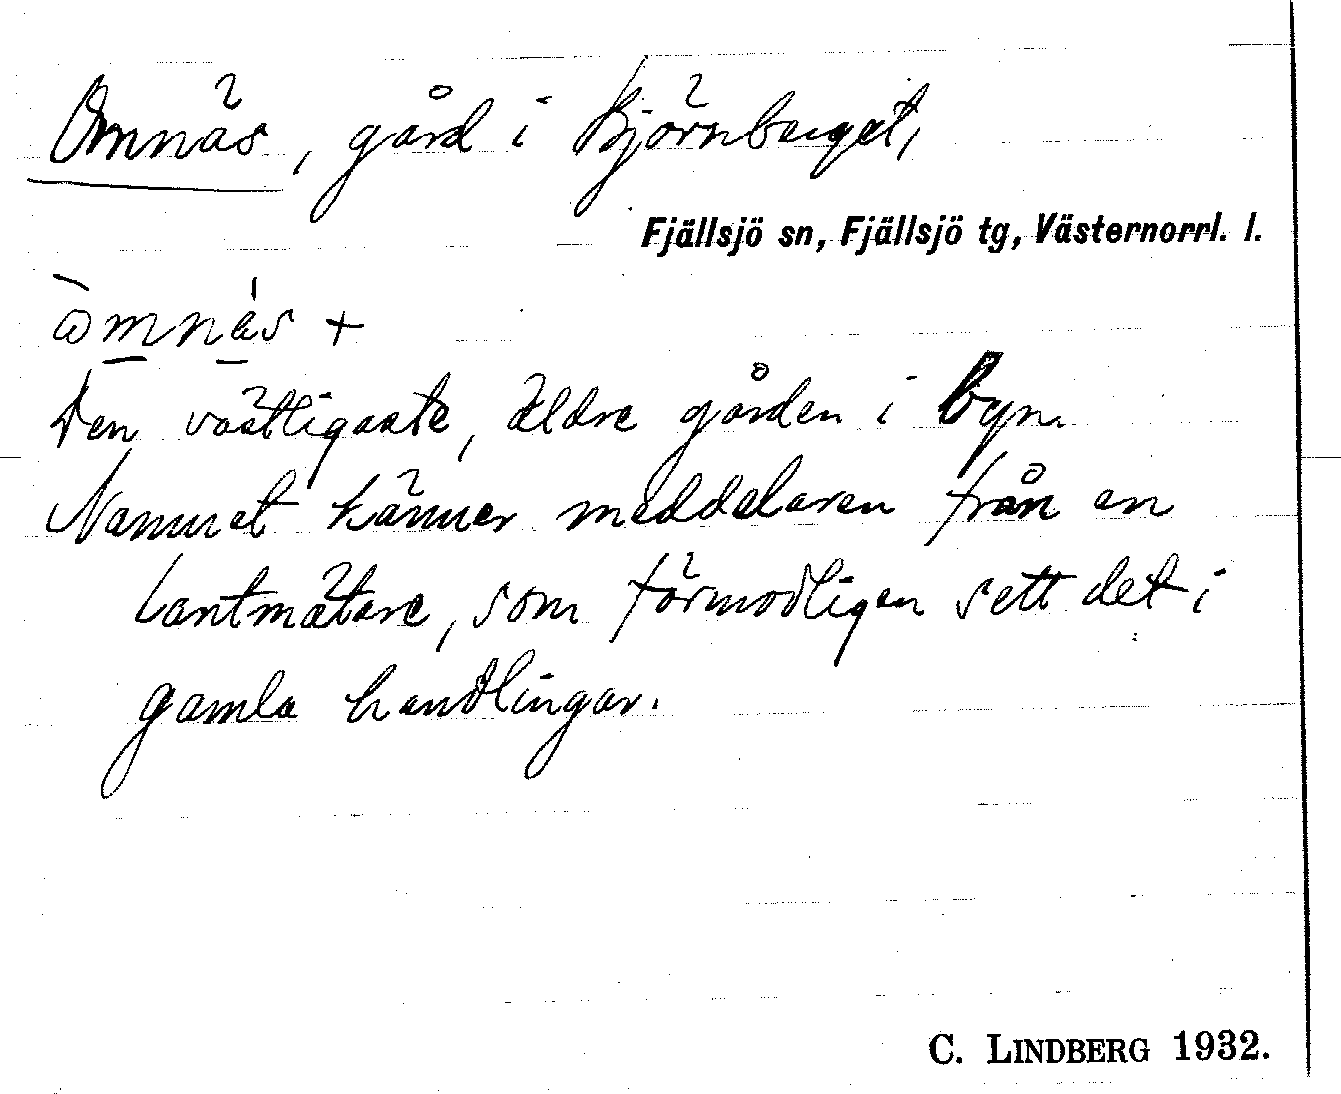 Omnäs, gård i Björnberget,
Fjällsjö sn, Fjällsjö tg, Västernorrl. l.
Den västligaste, äldre gården i byn.
Namnet känner meddelaren från en
lantmätare, som förmodligen sett det i
gamla handlingar.
C. LINDBERG 1932.